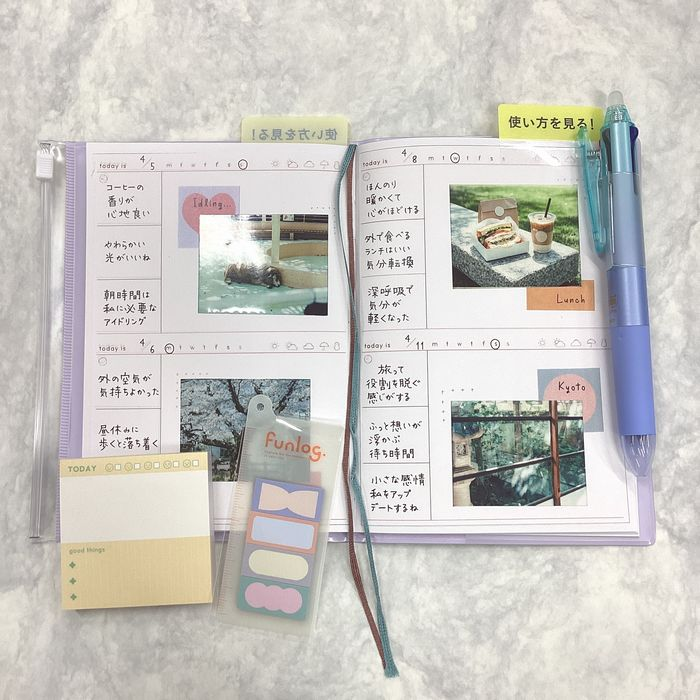 使い方を見る!
使い方を見る!
today is 4/5 m t w t f s s
コーヒーの
香りが
心地良い
やわらかい
光がいいね
朝時間は
私に必要な
アイドリング
Idling...
today is 4/6 m t w t f s s
外の空気が
気持ちよかった
昼休みに
歩くと落ち着く
today is 4/8 m t w t f s s
ほんのり
暖かくて
心がほどける
外で食べる
ランチはいい
気分転換
深呼吸で
気分が
軽くなった
Lunch
today is 4/11 m t w t f s s
旅って
役割を脱ぐ
感じがする
ふっと想いが
浮かぶ
待ち時間
小さな感情
私をアップ
デートするね
Kyoto
TODAY
good things
funlog.